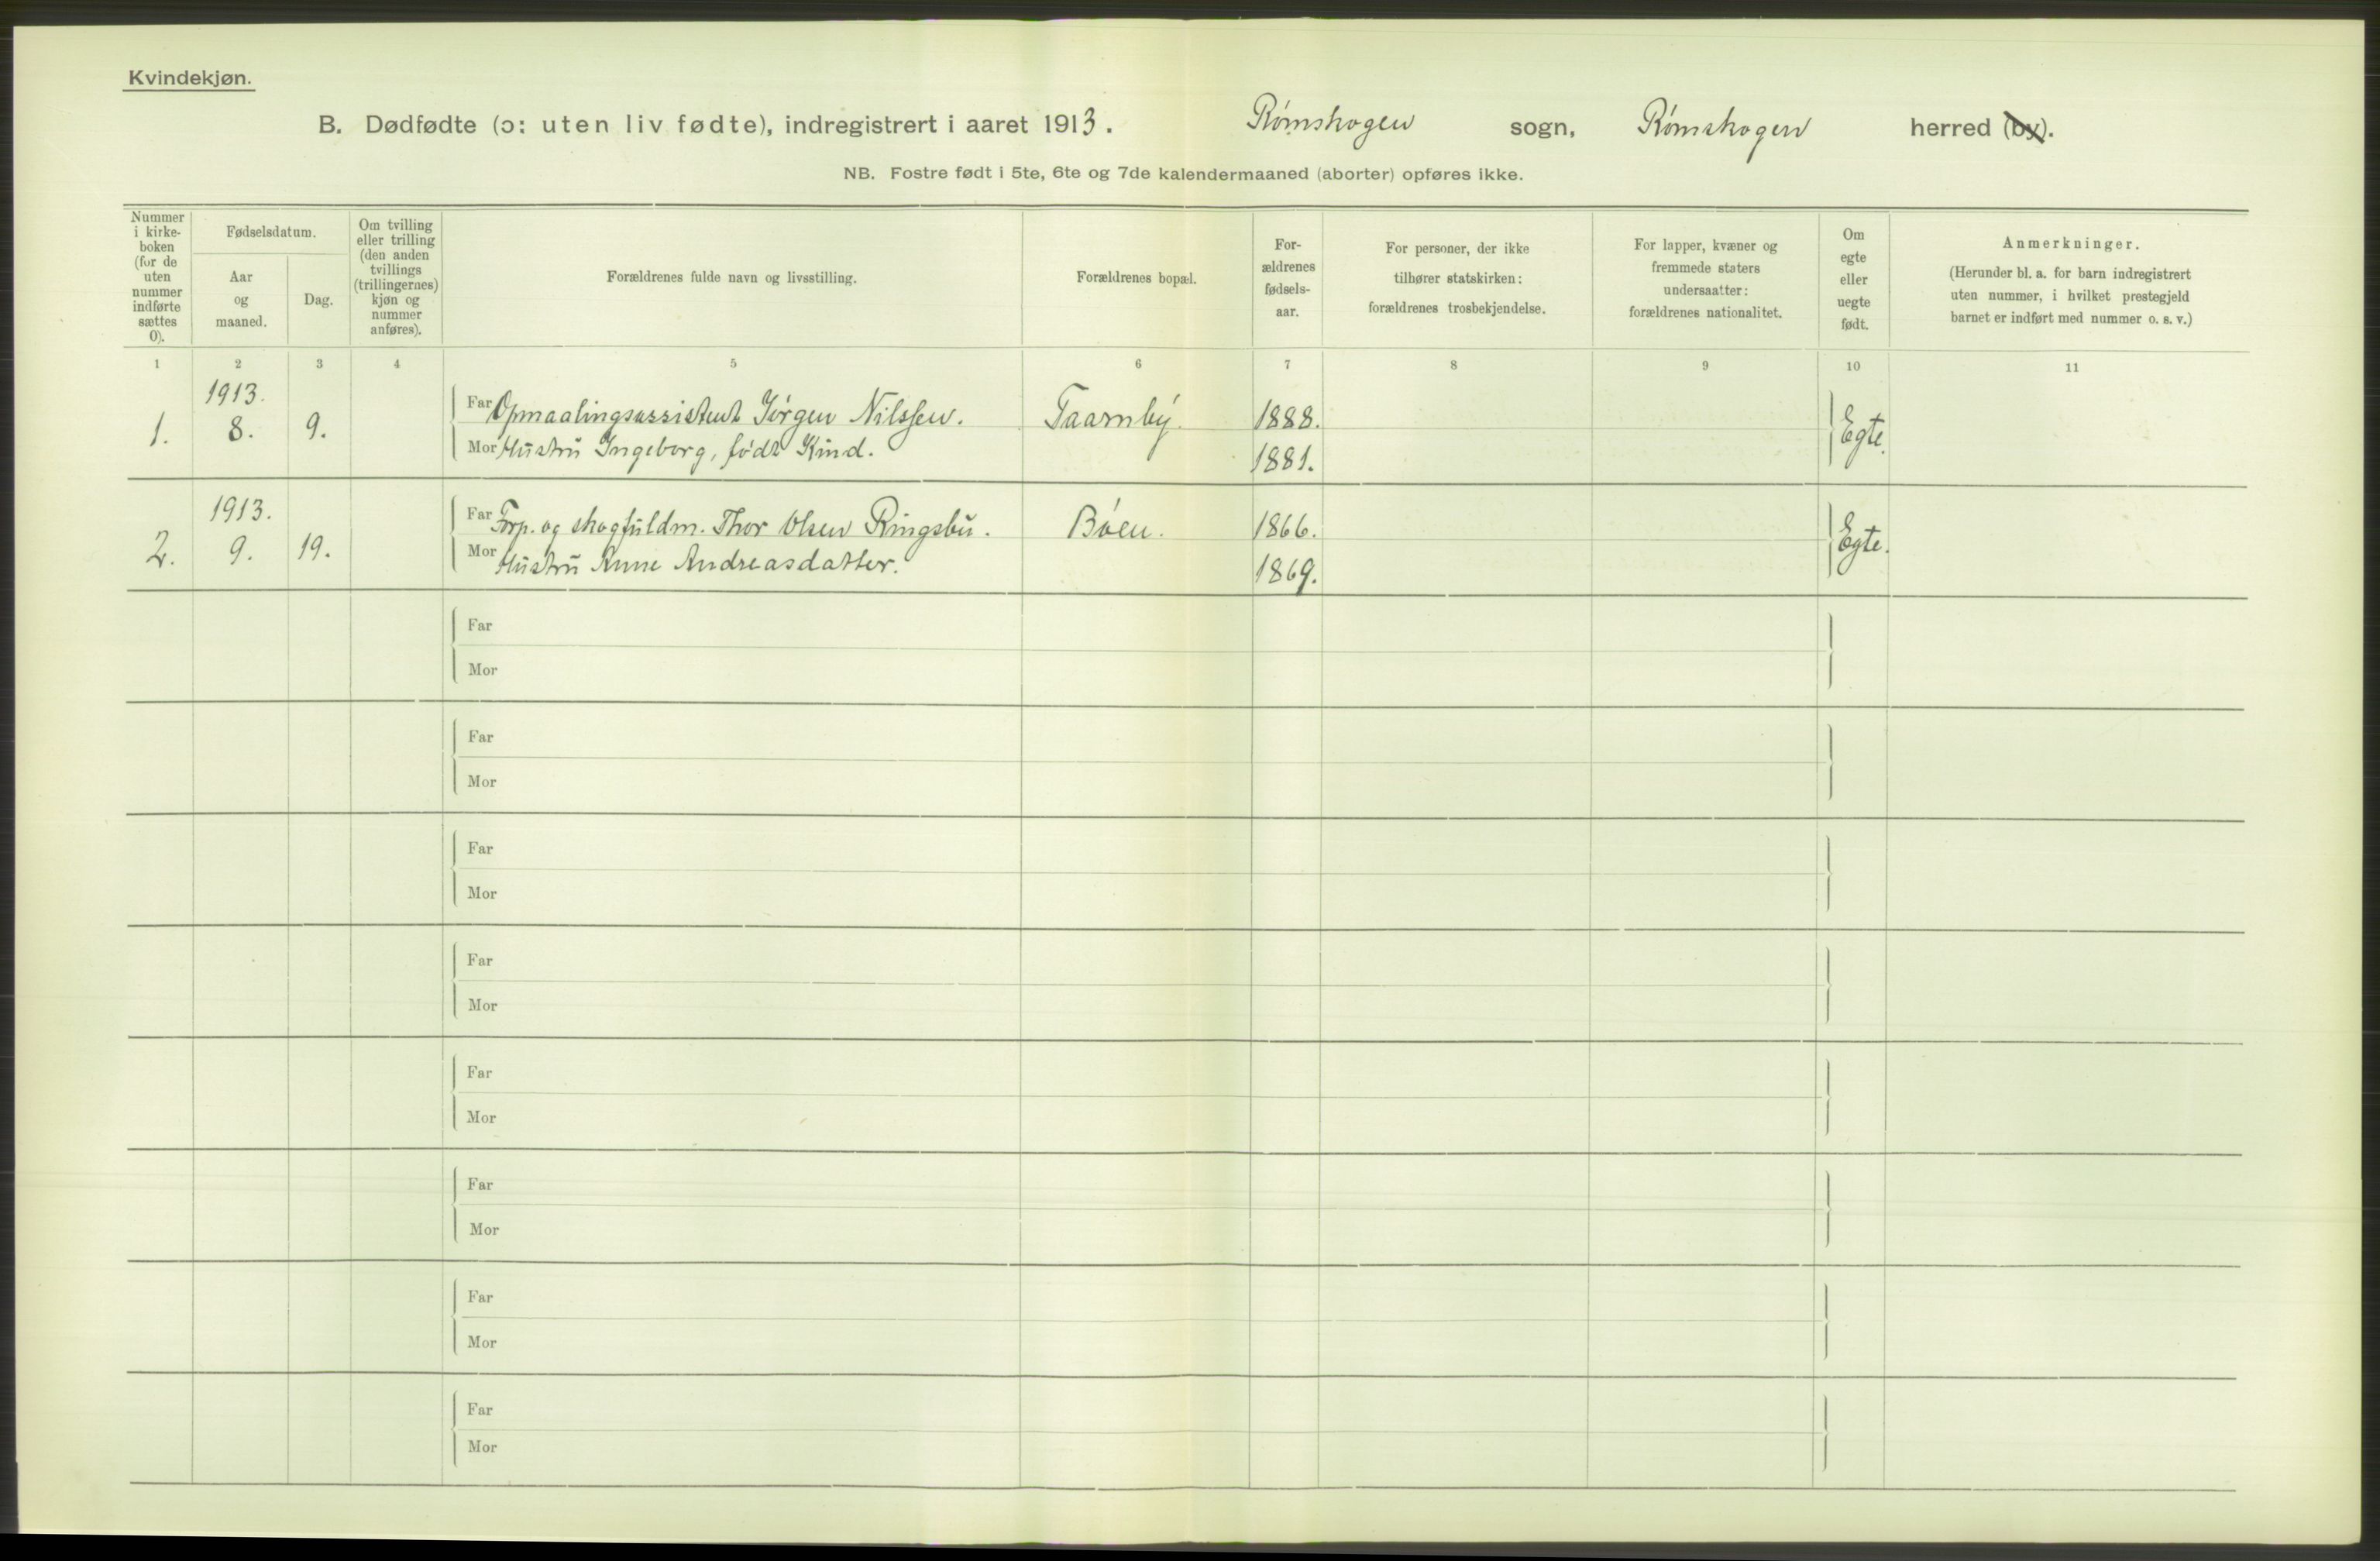 Kvindekjøn.
B. Dødfødte (ɔ: uten liv fødte), indregistrert i aaret 1913. Rømskogen sogn, Rømskogen herred (by).
NB. Fostre født i 5te, 6te og 7de kalendermaaned (aborter) opføres ikke.
Nummer
i kirke-
boken
(for de
uten
nummer
indførte
sættes
0).
Fødselsdatum.
Aar
og
maaned.
Dag.
Om tvilling
eller trilling
(den anden
tvillings
(trillingernes)
kjøn og
nummer
anføres).
Forældrenes fulde navn og livsstilling.
Forældrenes bopæl.
For-
ældrenes
fødsels-
aar.
For personer, der ikke
tilhører statskirken:
forældrenes trosbekjendelse.
For lapper, kvæner og
fremmede staters
undersaatter:
forældrenes nationalitet.
Om
egte
eller
uegte
født.
Anmerkninger.
(Herunder bl. a. for barn indregistrert
uten nummer, i hvilket prestegjeld
barnet er indført med nummer o. s. v.)
1 2 3 4 5 6 7 8 9 10 11
1913.
1. 8. 9. Far Opmaalingsassistent Jørgen Nilssen. Taarnby. 1888. Egte.
Mor Hustru Ingeborg, født Kind. 1881.
1913.
2. 9. 19. Far Forp. og skogfuldm. Thor Olsen Ringsbu. Bøen. 1866. Egte.
Mor Hustru Anne Andreasdatter. 1869.
Far
Mor
Far
Mor
Far
Mor
Far
Mor
Far
Mor
Far
Mor
Far
Mor
Far
Mor